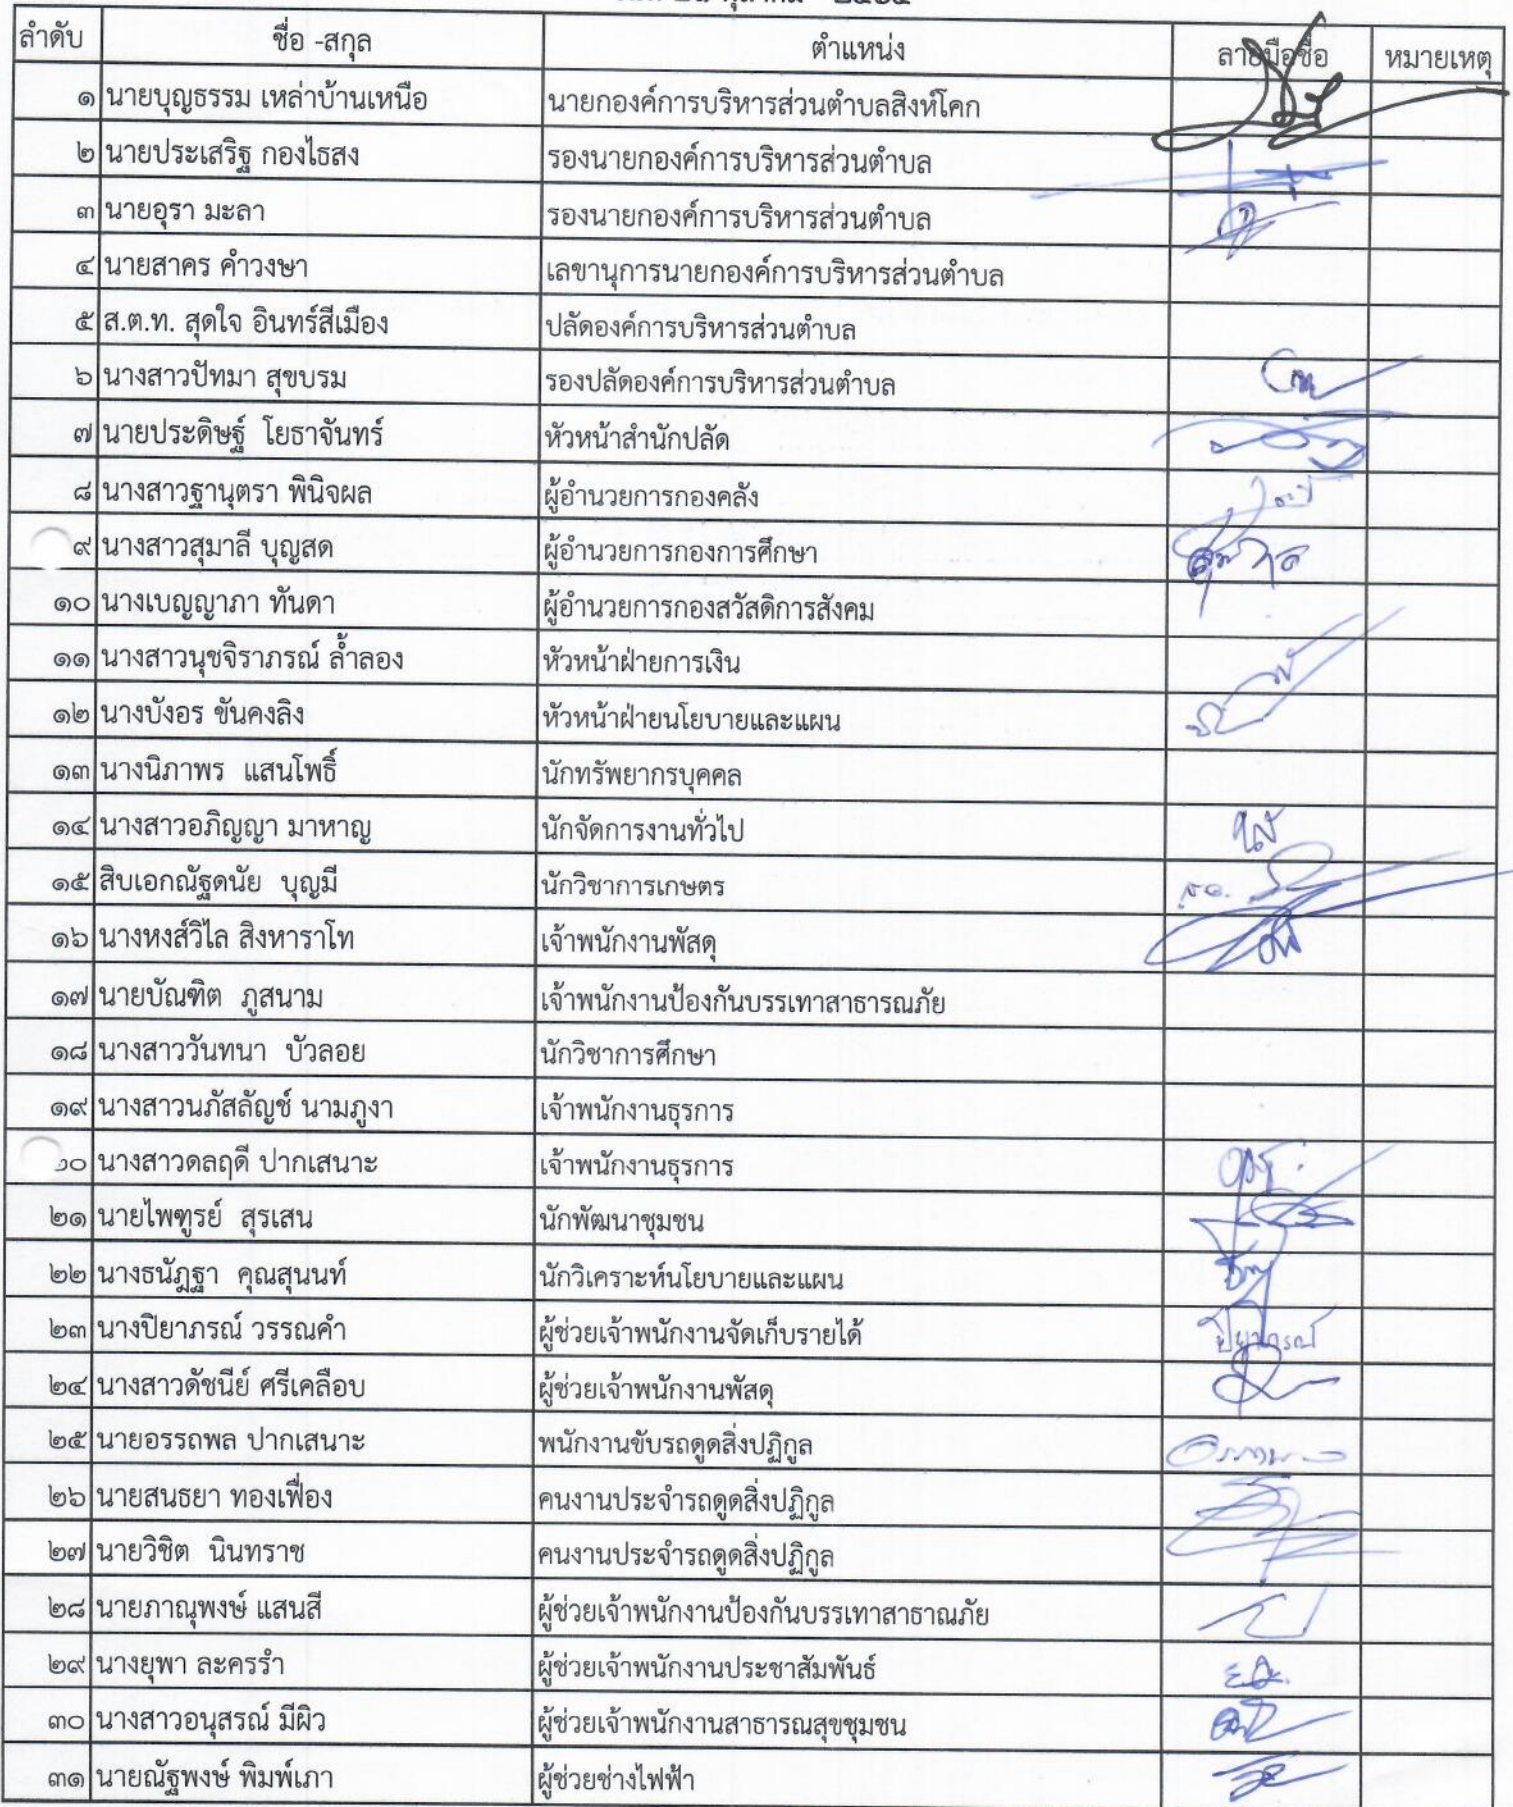 ลำดับ ชื่อ -สกุล ตำแหน่ง ลายมือชื่อ หมายเหตุ
๑ นายบุญธรรม เหล่าบ้านเหนือ นายกองค์การบริหารส่วนตำบลสิงห์โคก
๒ นายประเสริฐ กองไธสง รองนายกองค์การบริหารส่วนตำบล
๓ นายอุรา มะลา รองนายกองค์การบริหารส่วนตำบล
๔ นายสาคร คำวงษา เลขานุการนายกองค์การบริหารส่วนตำบล
๕ ส.ต.ท. สุดใจ อินทร์สีเมือง ปลัดองค์การบริหารส่วนตำบล
๖ นางสาวปัทมา สุขบรม รองปลัดองค์การบริหารส่วนตำบล
๗ นายประดิษฐ์ โยธาจันทร์ หัวหน้าสำนักปลัด
๘ นางสาวฐานุตรา พินิจผล ผู้อำนวยการกองคลัง
๙ นางสาวสุมาลี บุญสด ผู้อำนวยการกองการศึกษา
๑๐ นางเบญญาภา ทันดา ผู้อำนวยการกองสวัสดิการสังคม
๑๑ นางสาวนุชจิราภรณ์ ล้ำลอง หัวหน้าฝ่ายการเงิน
๑๒ นางบังอร ขันคงลิง หัวหน้าฝ่ายนโยบายและแผน
๑๓ นางนิภาพร แสนโพธิ์ นักทรัพยากรบุคคล
๑๔ นางสาวอภิญญา มาหาญ นักจัดการงานทั่วไป
๑๕ สิบเอกณัฐดนัย บุญมี นักวิชาการเกษตร
๑๖ นางหงส์วิไล สิงหาราโท เจ้าพนักงานพัสดุ
๑๗ นายบัณฑิต ภูสนาม เจ้าพนักงานป้องกันบรรเทาสาธารณภัย
๑๘ นางสาววันทนา บัวลอย นักวิชาการศึกษา
๑๙ นางสาวนภัสลัญช์ นามภูงา เจ้าพนักงานธุรการ
๒๐ นางสาวดลฤดี ปากเสนาะ เจ้าพนักงานธุรการ
๒๑ นายไพฑูรย์ สุรเสน นักพัฒนาชุมชน
๒๒ นางธนัฎฐา คุณสุนนท์ นักวิเคราะห์นโยบายและแผน
๒๓ นางปิยาภรณ์ วรรณคำ ผู้ช่วยเจ้าพนักงานจัดเก็บรายได้ ปิยาภรณ์
๒๔ นางสาวดัชนีย์ ศรีเคลือบ ผู้ช่วยเจ้าพนักงานพัสดุ
๒๕ นายอรรถพล ปากเสนาะ พนักงานขับรถดูดสิ่งปฏิกูล
๒๖ นายสนธยา ทองเฟื่อง คนงานประจำรถดูดสิ่งปฏิกูล
๒๗ นายวิชิต นินทราช คนงานประจำรถดูดสิ่งปฏิกูล
๒๘ นายภาณุพงษ์ แสนสี ผู้ช่วยเจ้าพนักงานป้องกันบรรเทาสาธาณภัย
๒๙ นางยุพา ละครรำ ผู้ช่วยเจ้าพนักงานประชาสัมพันธ์
๓๐ นางสาวอนุสรณ์ มีผิว ผู้ช่วยเจ้าพนักงานสาธารณสุขชุมชน
๓๑ นายณัฐพงษ์ พิมพ์เภา ผู้ช่วยช่างไฟฟ้า